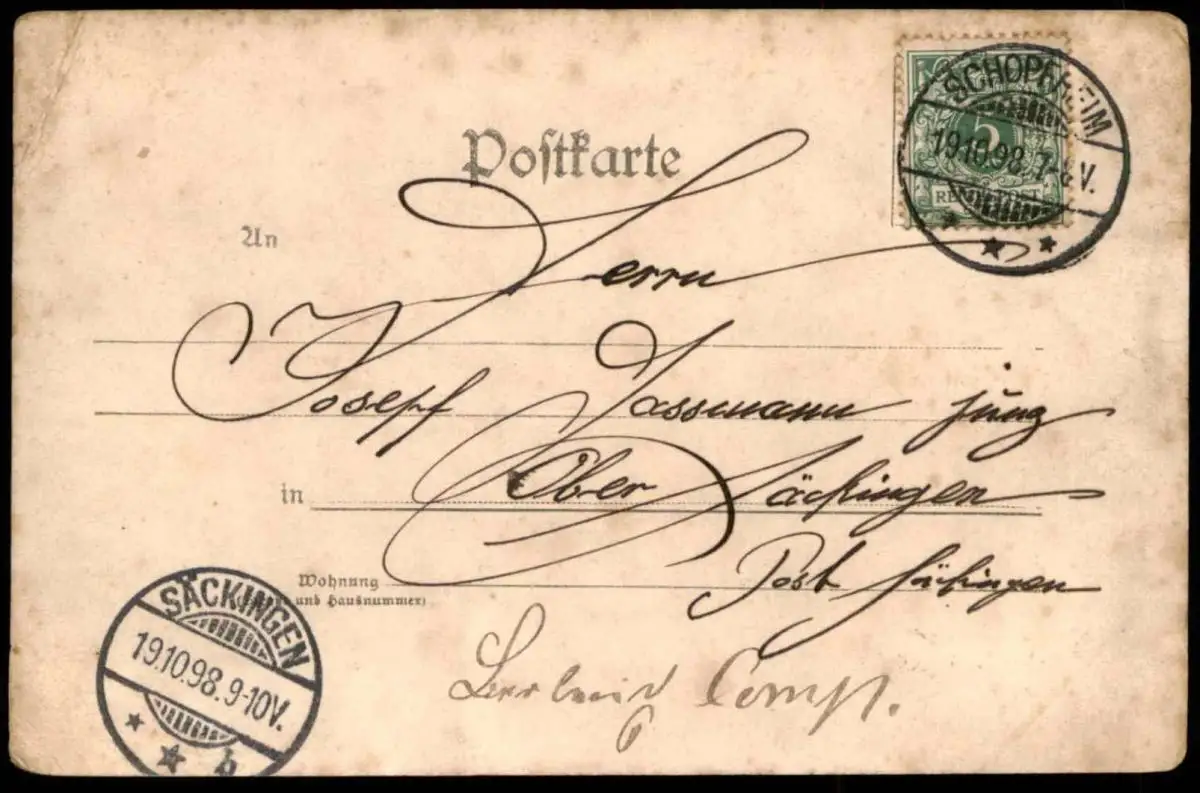 SCHOPFHEIM
19.10.98. 7-8 V.
5
REICHSPOST
Postkarte
An
Herrn
Josepf Sassmann jung
in Ober Säckingen
Wohnung
und Hausnummer)
Post Säckingen
SÄCKINGEN
19.10.98. 9-10V.
b
Comp.